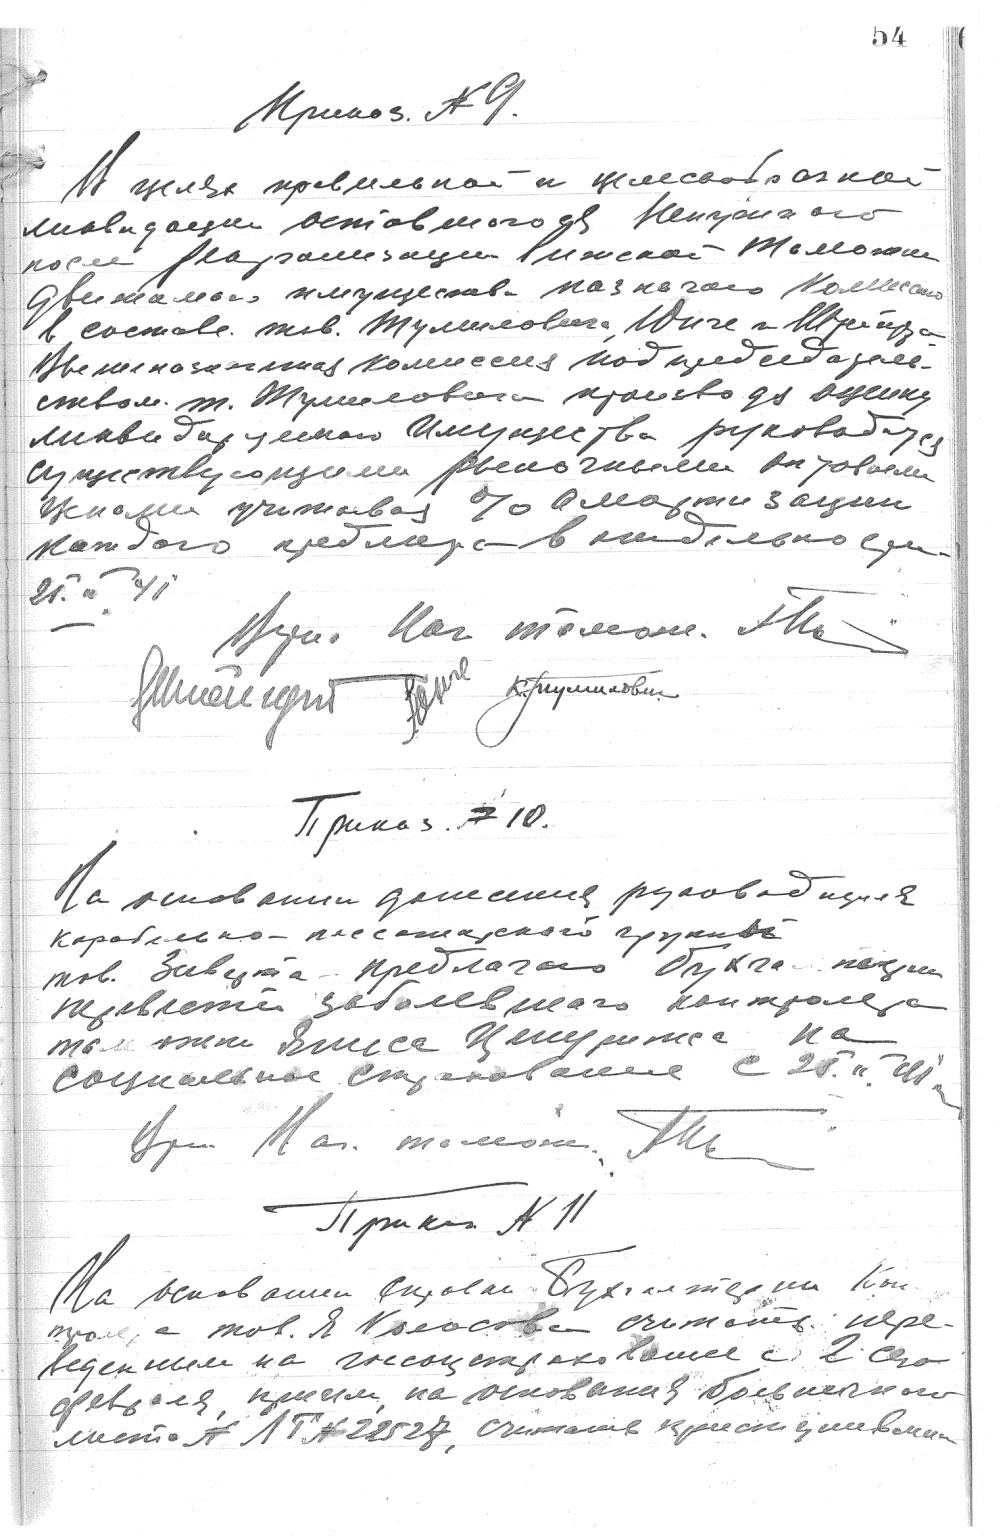 54
Приказ. № 9.
В целях правильной и целесообразной
ликвидации оставшегося ненужного
после реорганизации Рижской Таможни
движимого имущества назначаю комиссию
в составе тов. Тумиловича, Юнге и
Вышеназначенная комиссия под председатель-
ством т. Тумиловича производя оценку
ликвидируемого имущества руководится
существующими рыночными оптовыми
ценами учитывая % амортизации
каждого предмета в отдельности
25.II 41
Врио Нач таможн.
Юнге К. Тумилович
Приказ. № 10.
На основании донесения руководителя
корабельно-пассажирского группы
тов. предлагаю бухгалтерии
перевести заболевшего контролера
таможни Яниса на
социальное страхование с 25.II 41
Врио Нач. таможн.
Приказ № 11
На основании справки Бухгалтерии Кон-
тролера тов. Я Колосова считать пере-
веденным на госсоцстрахование с 2 сего
февраля, причем, на основания больничного
листа № ЛТ № 22527, считать приступившим